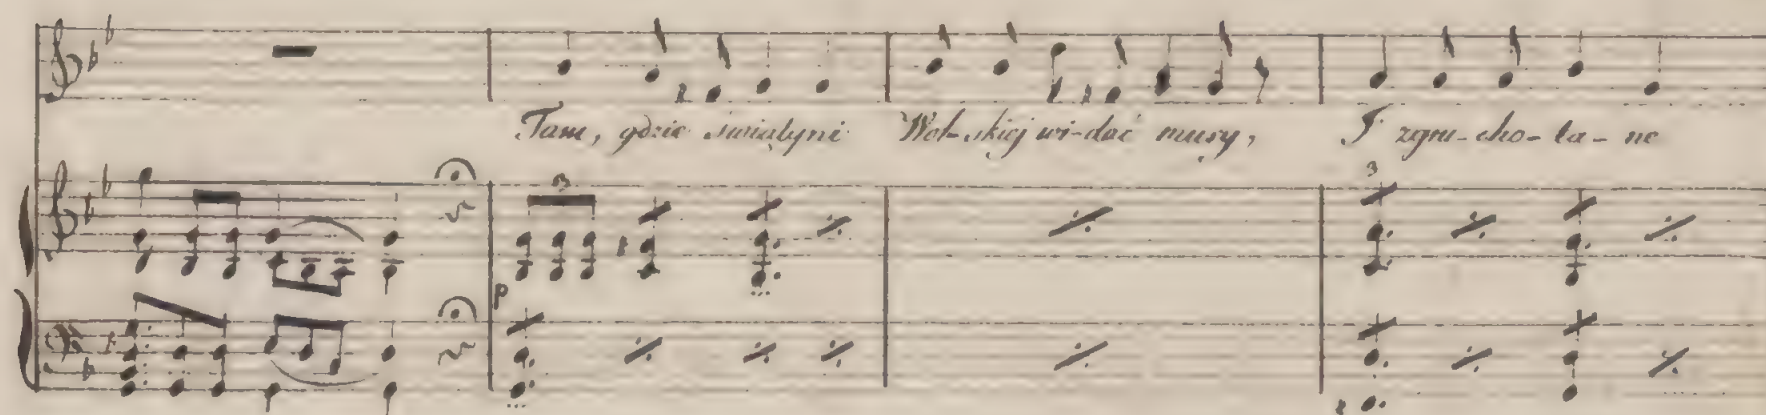 Tam, gdzie świątyni Wol-skiej wi-dać mury, I zgru-cho-ta-ne
3
3
p